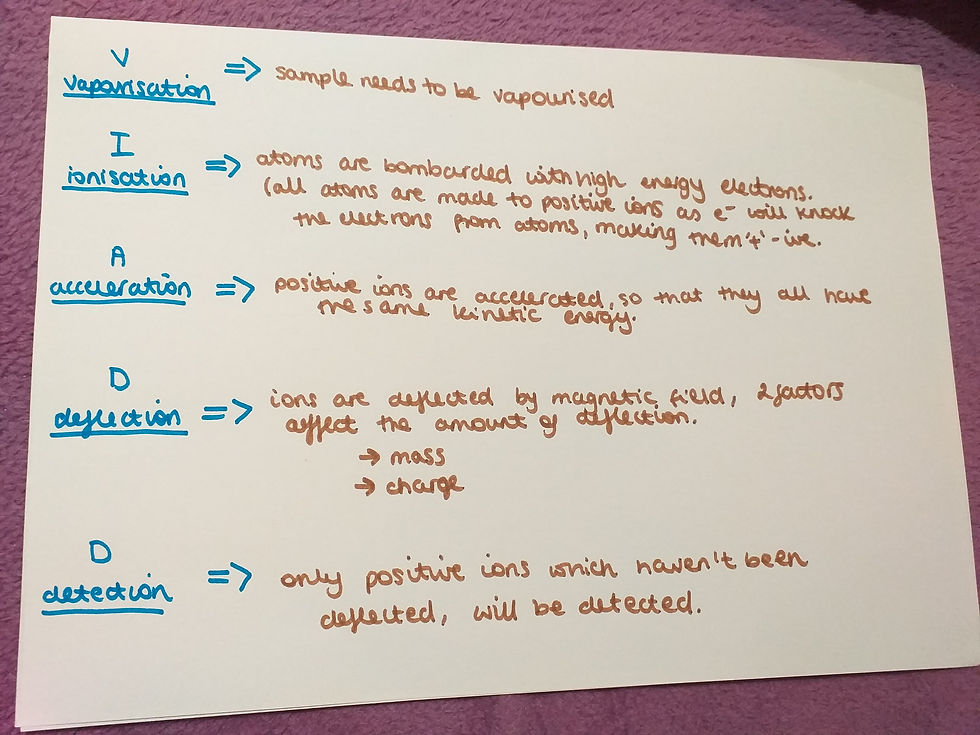 V
vaporisation => sample needs to be vapourised
I
ionisation => atoms are bombarded with high energy electrons.
(all atoms are made to positive ions as e⁻ will knock
the electrons from atoms, making them '+' -ive.
A
acceleration => positive ions are accelerated, so that they all have
the same kinetic energy.
D
deflection => ions are deflected by magnetic field, 2 factors
affect the amount of deflection.
→ mass
→ charge
D
detection => only positive ions which haven't been
deflected, will be detected.